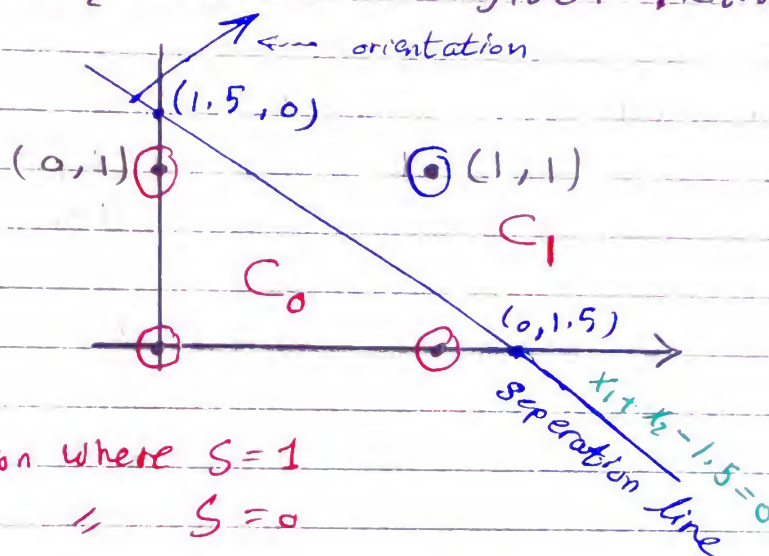 orientation
(1.5,0)
(0,1)
(1,1)
C1
C0
(0,1.5)
x1+x2-1.5=0
seperation line
on where S=1
〃 S=0